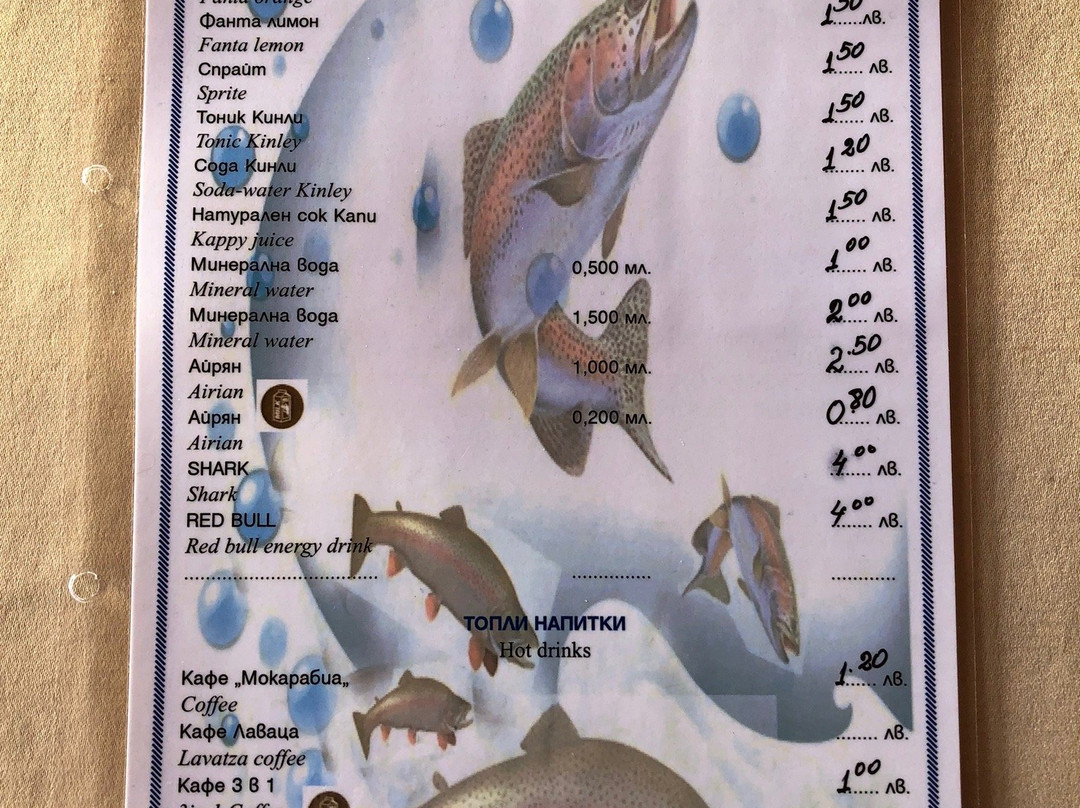 Fanta orange
Фанта лимон 1 50 ......лв.
Fanta lemon
Спрайт 1 50 ...... лв.
Sprite
Тоник Кинли 1 50 ...... лв.
Tonic Kinley
Сода Кинли 1 20 ...... лв.
Soda-water Kinley
Натурален сок Капи 1 50 ...... лв.
Kappy juice
Минерална вода 0,500 мл. 1 00 ...... лв.
Mineral water
Минерална вода 1,500 мл. 2 00 ...... лв.
Mineral water
Айрян 1,000 мл. 2.50 ...... лв.
Airian
Айрян 0,200 мл. 0 80 ...... лв.
Airian
SHARK 4 00 ...... лв.
Shark
RED BULL 4 00 ...... лв.
Red bull energy drink
ТОПЛИ НАПИТКИ
Hot drinks
Кафе „Мокарабиа„ 1.20 ...... лв.
Coffee
Кафе Лаваца ........ лв.
Lavatza coffee
Кафе 3 в 1 1 00 ...... лв.